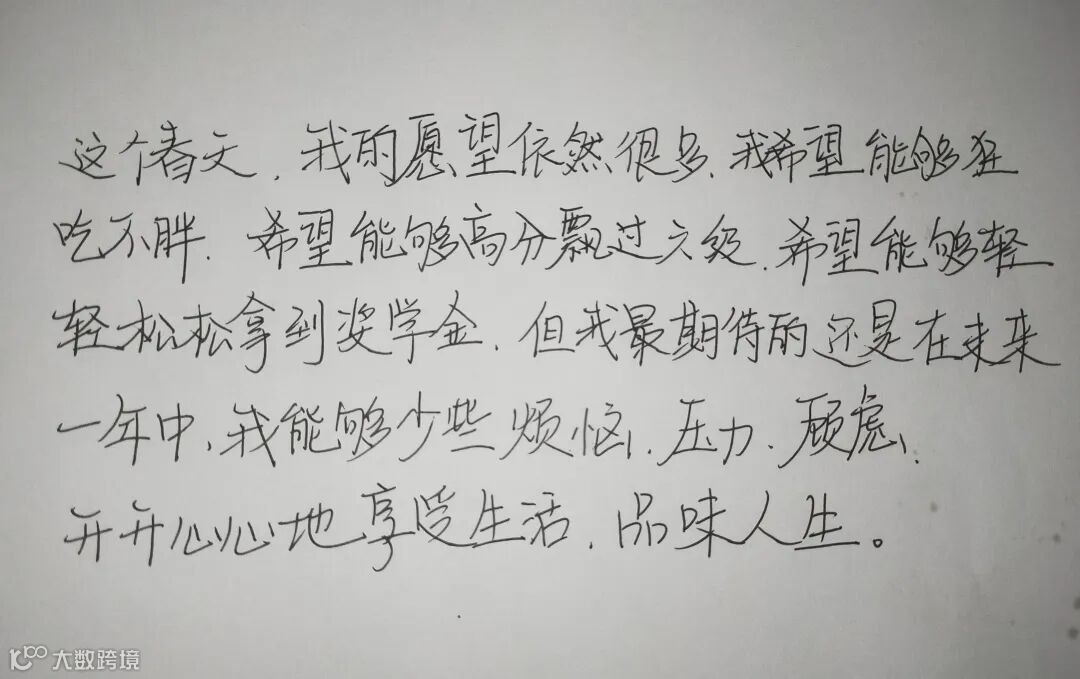 这个春天，我的愿望依然很多，我希望能够狂
吃不胖，希望能够高分飘过六级，希望能够轻
轻松松拿到奖学金，但我最期待的还是在未来
一年中，我能够少些烦恼、压力、顾虑，
开开心心地享受生活，品味人生。
大数跨境